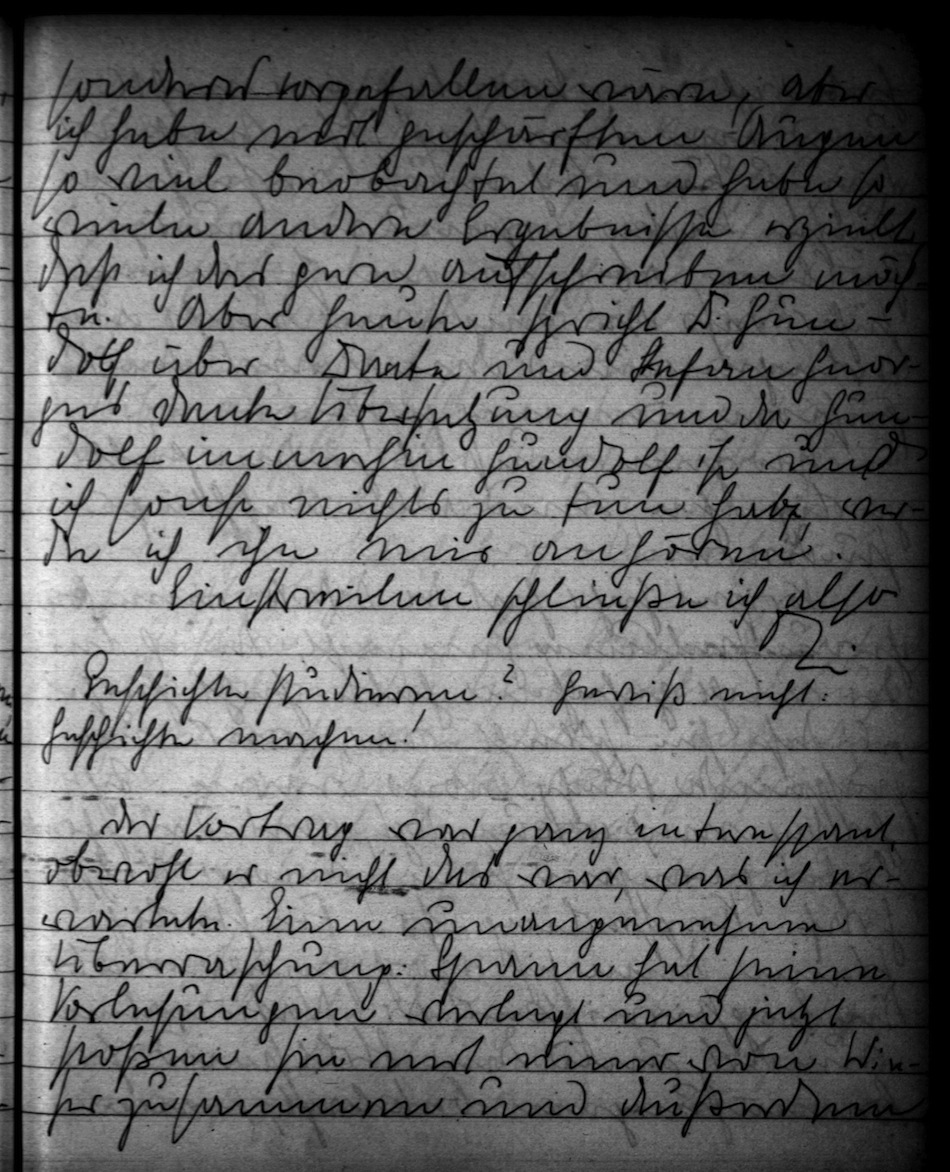 sonderes vorgefallen wäre, aber
ich habe mit geschärften Augen
so viel beobachtet und habe so
viele andere Ergebnisse erzielt,
daß ich das gern aufschreiben möch-
te. Aber heute spricht D. Gun-
dolf über Dante und Stefan Geor-
ges Dante Übersetzung und da Gun-
dolf immerhin Gundolf ist und
ich sonst nichts zu tun habe, wer-
de ich ihn mir anhören.
Einstweilen schließe ich also
Geschichte studieren? Gewiß nicht:
Geschichte machen!
Der Vortrag war ganz interessant,
obwohl er nicht das war, was ich er-
wartete. Eine unangenehme
Überraschung: Spann hat seine
Vorlesungen verlegt und jetzt
stoßen sie mit einer von Win-
ter zusammen und außerdem